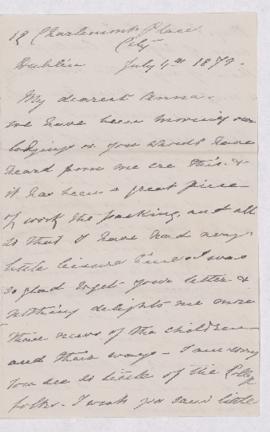 12 Charlemont Place
City
Dublin July 4th 1879.
My dearest Anna.
We have been moving our
lodgings or you would have
heard from me ere this. &
it has been a great piece
of work the packing, and all
so that I have had very
little leisure time. I was
so glad to get your letter &
nothing delights me more
than news of the children
and their ways. I am sorry
you see so little of the
folks. I wish you saw little